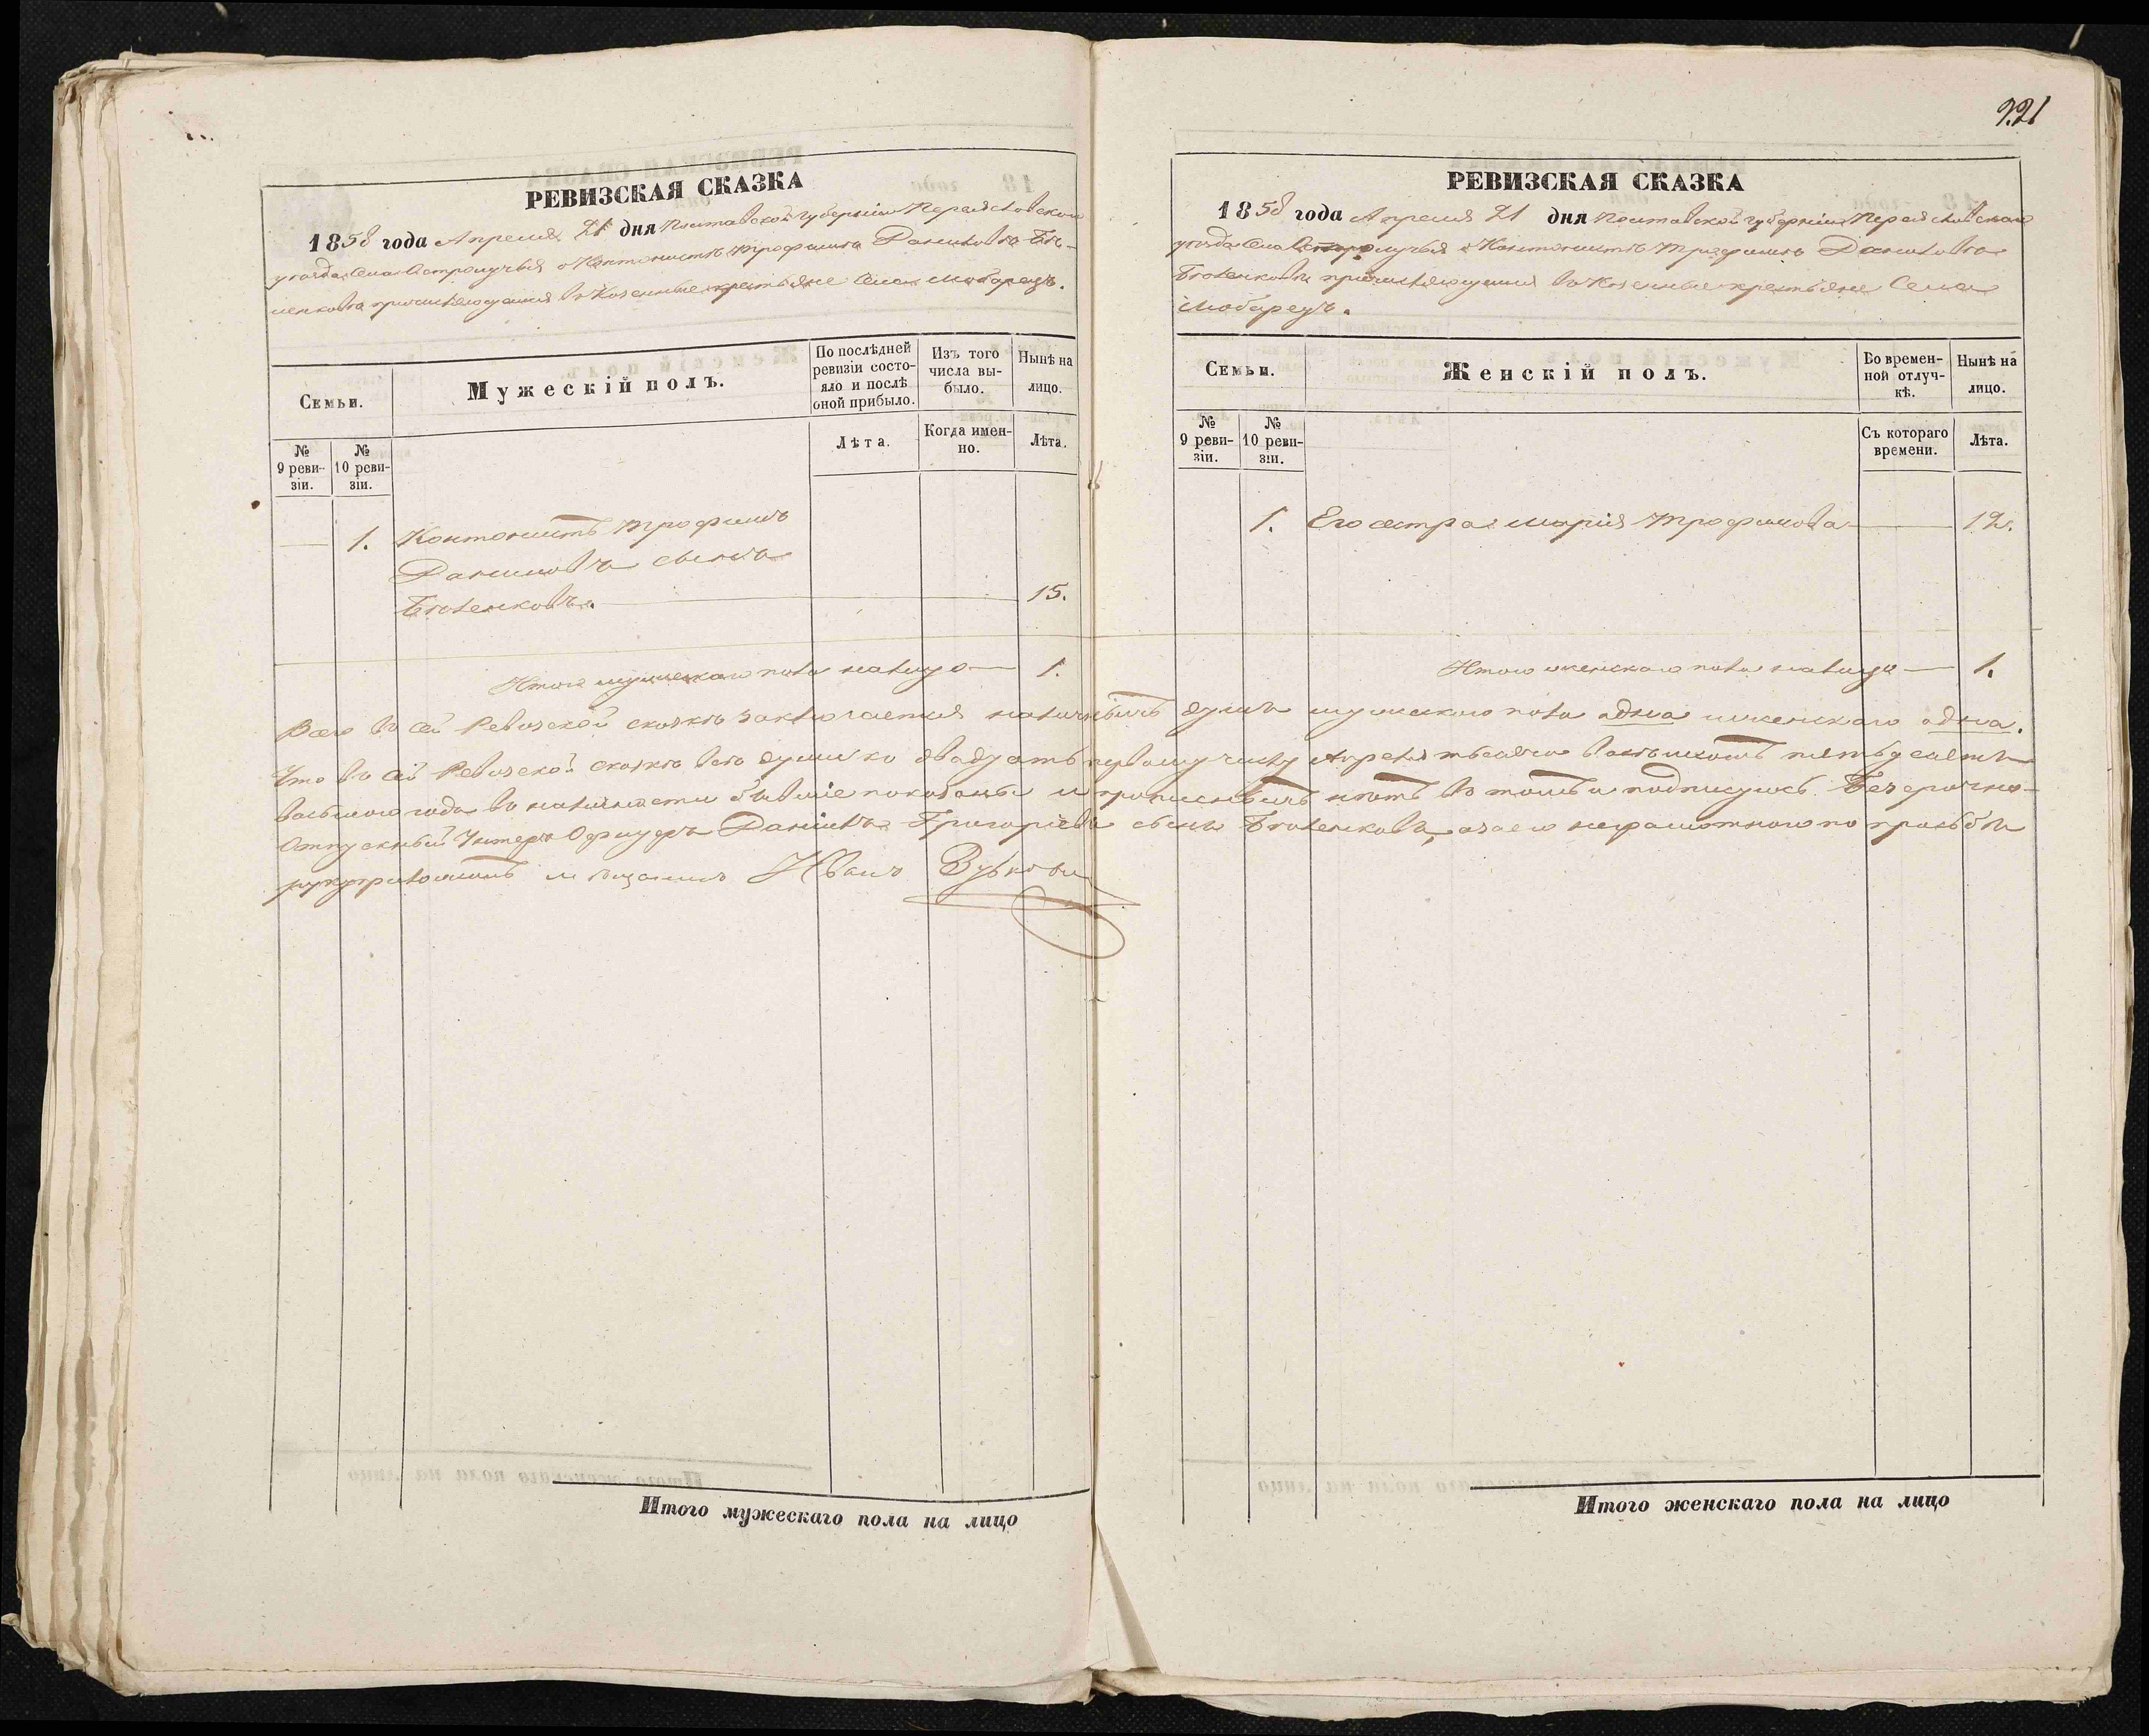 РЕВИЗСКАЯ СКАЗКА
1858 года Апреля 21 дня Полтавской губерніи Переяславскаго
уезда Села Остролучья о Контонисть Трофимь Даниловь Бѣ-
ленковь причисляющемся въ Козенные крестьяне Села Любарецъ.
Семьи.
Мужескій полъ.
По послѣдней ревизіи состояло и послѣ оной прибыло.
Изъ того числа выбыло.
Нынѣ на лицо.
№ 9 ревизіи.
№ 10 ревизіи.
Лѣта.
Когда именно.
Лѣта.
1. Контонистъ Трофимъ
Даниловъ сынъ
Бѣленковъ. 15.
Итого мужескаго пола налицо 1.
221
РЕВИЗСКАЯ СКАЗКА
1858 года Апреля 21 дня Полтавской губерніи Переяславскаго
уезда Села Остролучья о Контонисть Трофимь Даниловь
Бѣленковь причисляющемся въ Козенные крестьяне Села
Любарецъ.
Семьи.
Женскій полъ.
Во временной отлучкѣ.
Нынѣ на лицо.
№ 9 ревизіи.
№ 10 ревизіи.
Съ котораго времени.
Лѣта.
1. Его сестра Марія Трофимова 19.
Итого женскаго пола налицо 1.
Всего въ сей Ревизской сказкѣ заключается наличныхъ душъ мужескаго пола одна и женскаго одна.
Что въ сей Ревизской сказкѣ всѣ души ко двадцать первому числу Апреля тысяча восѣмьсотъ пятьдесятъ
восьмого года въ наличности бывшіе показаны и прописныхъ нѣтъ въ томъ и подписуюсь. Безсрочно-
Отпускный Унтеръ Офицеръ Данилъ Григорієвъ сынъ Бѣленковъ, а за его неграмотного по прозьбѣ
рукуприложилъ мѣщанинъ Иванъ Зубковъ
Итого мужескаго пола на лицо
Итого женскаго пола на лицо